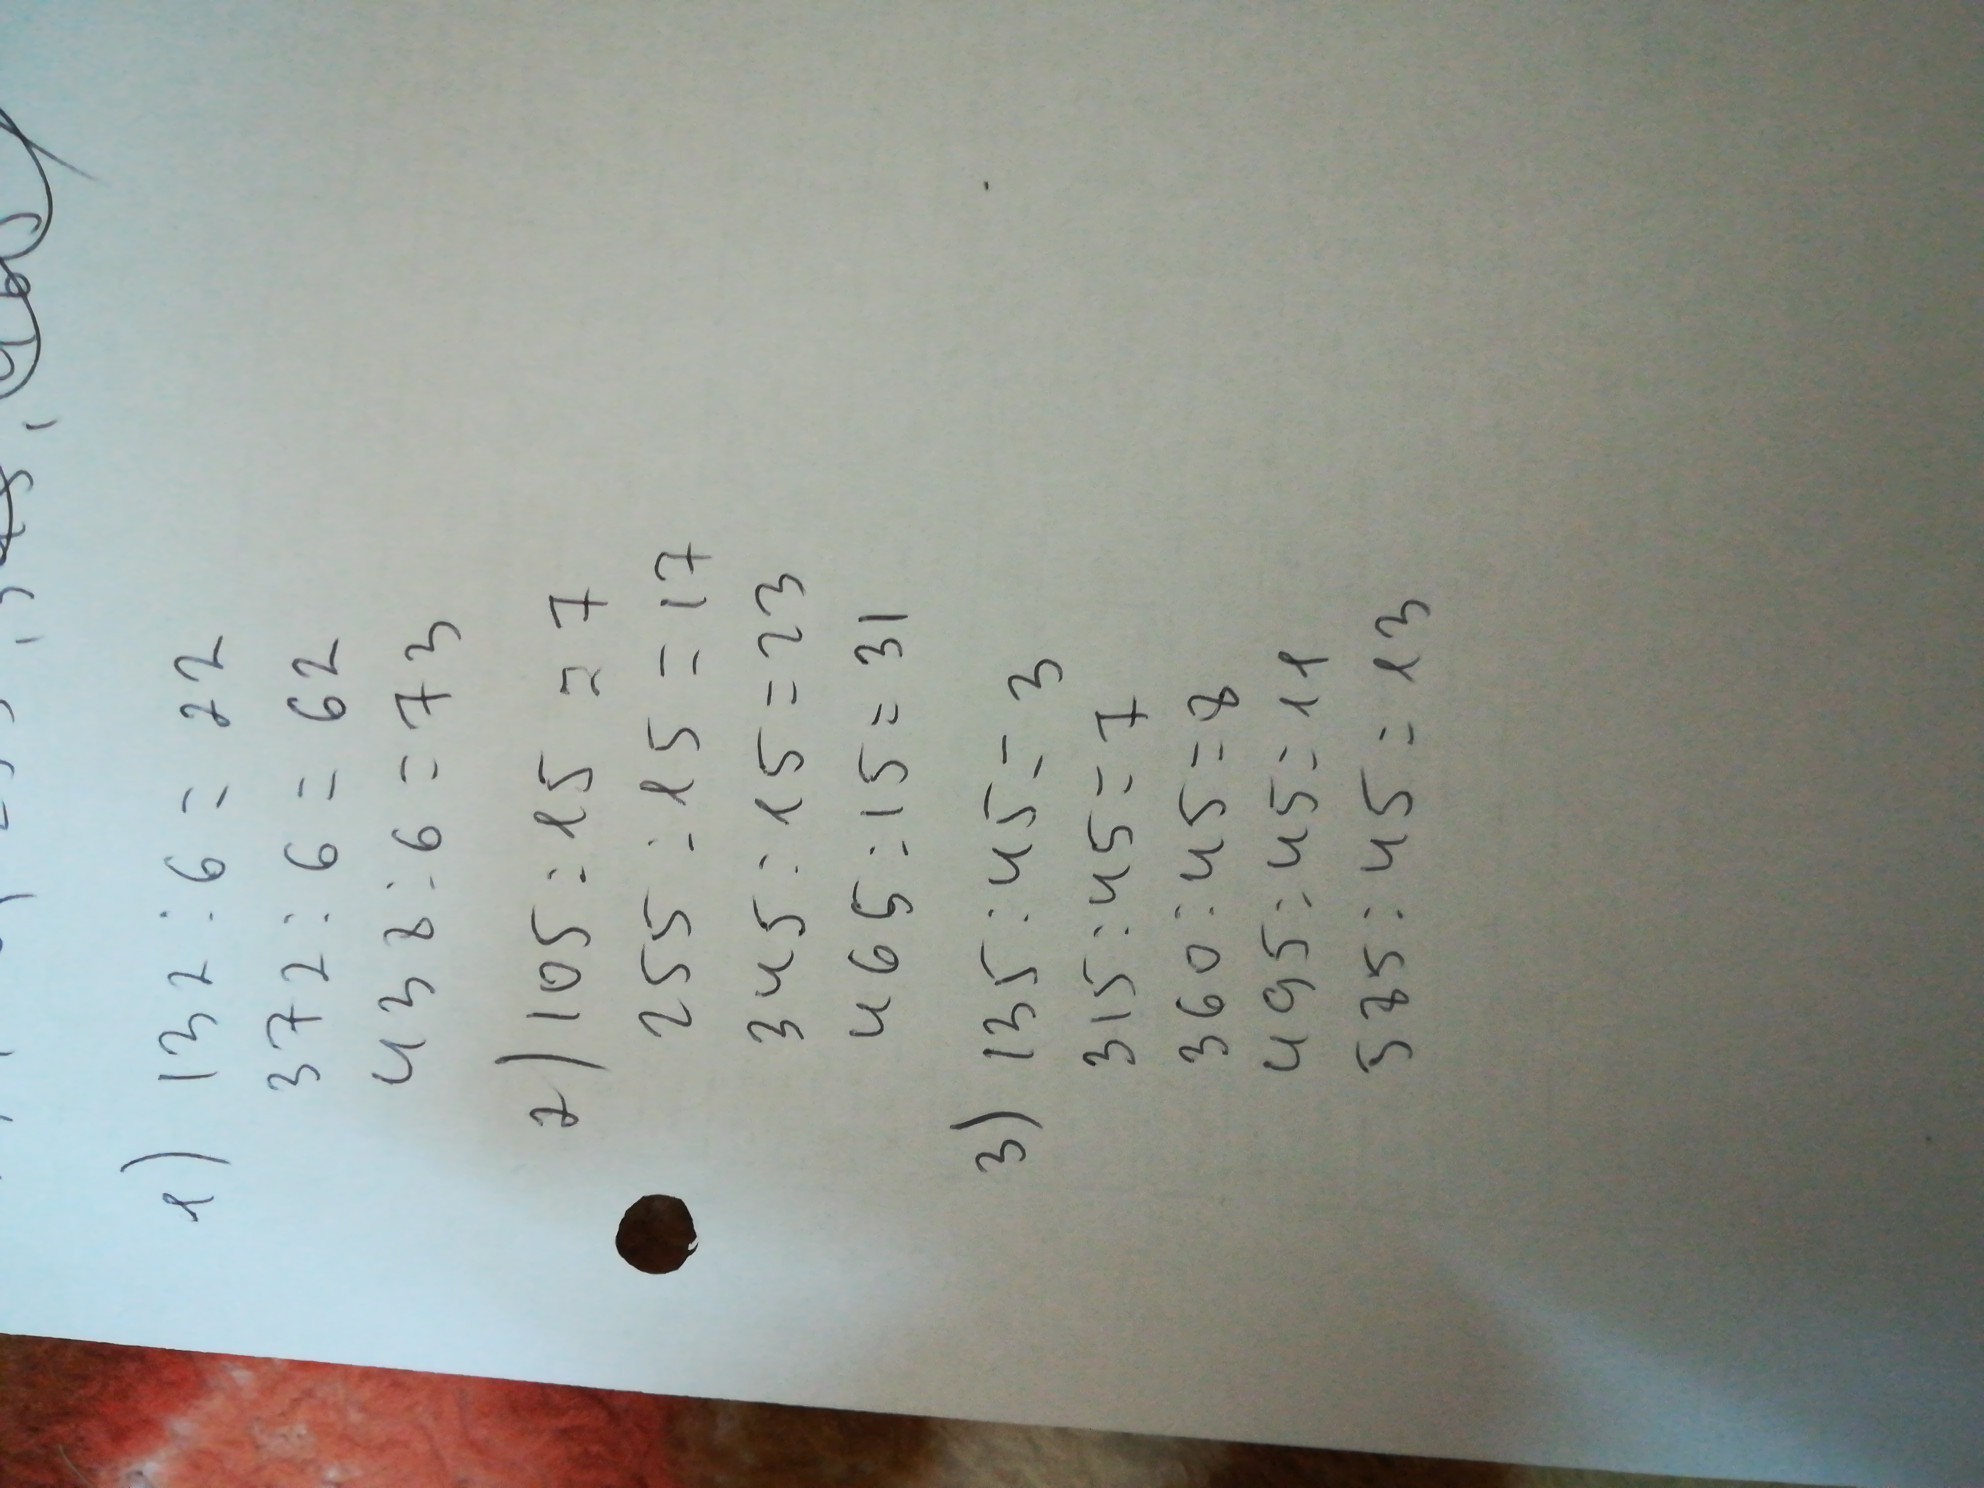 1) 132 : 6 = 22
372 : 6 = 62
438 : 6 = 73
2) 105 : 15 = 7
255 : 15 = 17
345 : 15 = 23
465 : 15 = 31
3) 135 : 45 = 3
315 : 45 = 7
360 : 45 = 8
495 : 45 = 11
585 : 45 = 13